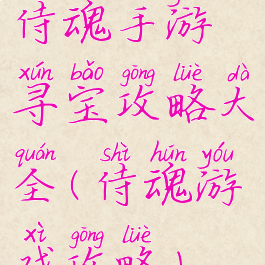 侍魂手游
xún bǎo gōng lüè dà
寻宝攻略大
quán shì hún yóu
全(侍魂游
xì gōng lüè
戏攻略)